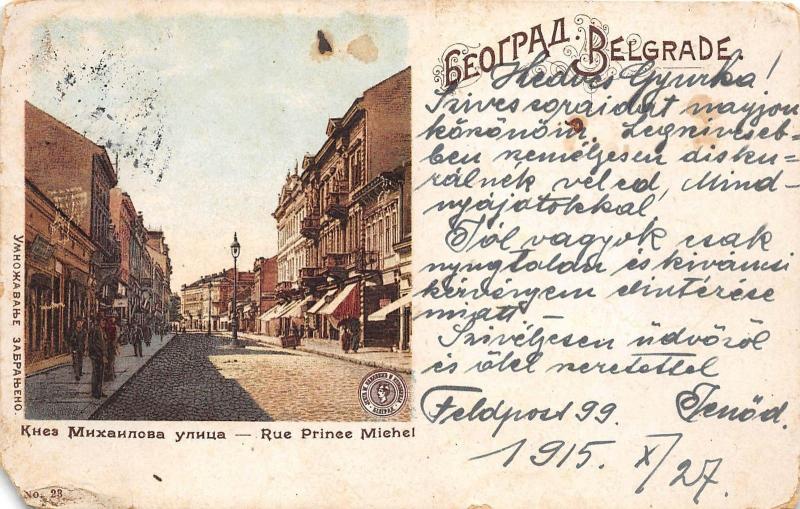 БЕОГРАД. BELGRADE.
Kedves Gyurka!
Szives soraidat nagyon
köszönöm. Legszíveseb-
ben személyesen disku-
rálnék veled, Mind-
nyájatokkal
Jól vagyok csak
nyugtalan és kiváncsi
kérvényem elintézése
miatt
Szivélyesen üdvözöl
és ölel szeretettel
Feldpost 99. Jenőd.
1915. X/27.
Умножавање забрањено.
Кнез Михаилова улица — Rue Prince Michel
No. 23